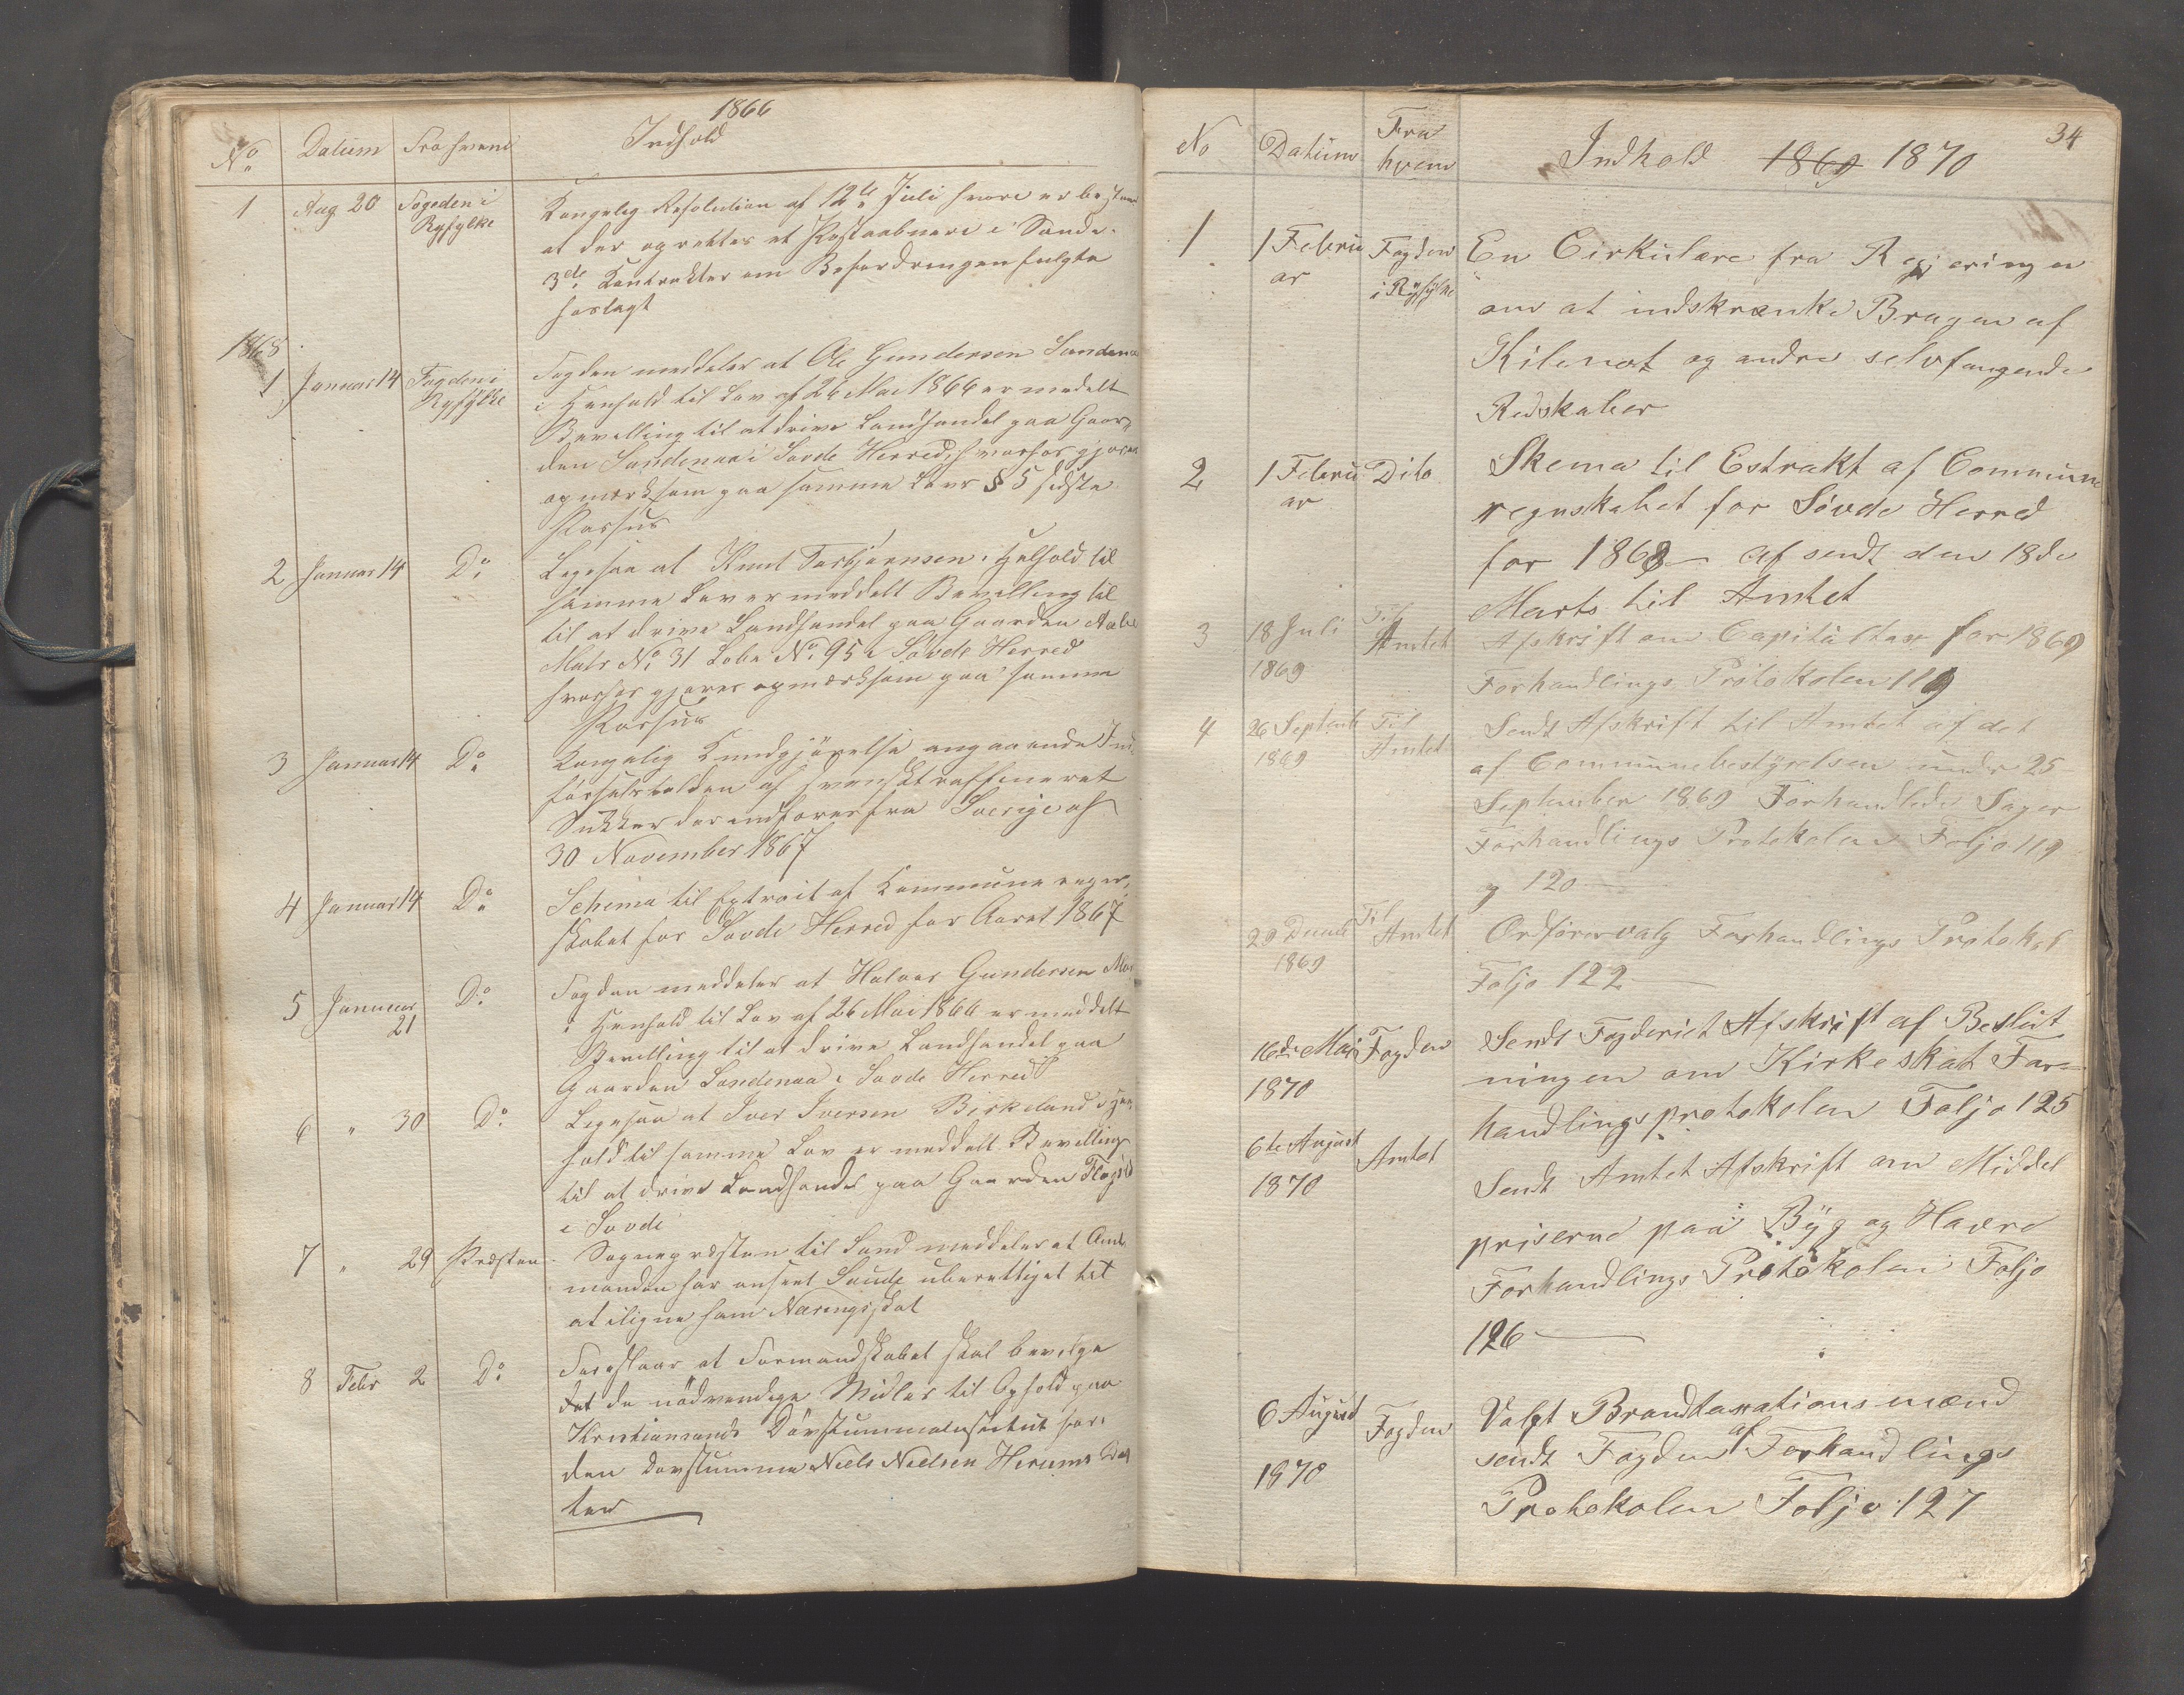 1866
No. Datum Fra hvem Indhold
1 Aug 20 Fogeden i Ryfylke
Kongelig Resolution af 12te Juli hvore er bestemt
at der oprettes et Postaabneri i Sande.
3de Kontrakter om Befordringen fulgte
forlagt
1868
1 Januar 14 Fogden i Ryfylke
Fogden meddeler at Ole Gundersen Sandenaa
i Henhold til Lov af 26 Mai 1866 er meddelt
Bevilling til at drive Landhandel paa Gaar-
den Sandenaa i Søvde Herred, hvorfor gjøres
opmærksom paa samme Lovs § 5 sidste
Passus
2 Januar 14 Do.
Ligesaa at Knut Torbjørnsen i Hehold til
samme Lov er meddelt Bevilling til
til at drive Landhandel paa Gaarden
Matr No. 31 Løbe No. 95 i Søvde Herred
hvorfor gjøres opmærksom paa samme
Passus
3 Januar 14 Do.
Kongelig Kundgjörelse angaaende Ind-
förselstolden af svensk raffineret
Sukker der indføres fra Sverige af
30 November 1867
4 Januar 14 Do.
Schema til Extrait af Kommune regn-
skabet for Søvde Herred for Aaret 1867
5 Januuar 21 Do.
Fogden meddeler at Halvor Gundersen
i Henhold til Lov af 26 Mai 1866 er meddelt
Bevilling til at drive Landhandel paa
Gaarden Sandenaa i Søvde Herred
6 " 30 Do.
Ligesaa at Iver Iversen Birkeland i Hen-
hold til samme Lov er meddelt Bevilling
til at drive Landhandel paa Gaarden
i Søvde
7 " 29 Præsten
Sognepræsten til Sand meddeler at Amt-
manden har anseet Saude uberettiget til
at iligne ham Næringsskat
8 Febr 2 Do
Foreslaar at Formandskabet skal bevilge
det de nödvendige Midler til Ophold paa
Kristiansands Dövstummeinstitut for
den Døvstumme Niels Nielsen Herums Dat
ter
34
No Datum Fra hvem Indhold 1869 1870
1 1 Februar Fogden i Ryfylke
En Cirkulære fra Regjeringen
om at indskrænke Brugen af
Kilenot og andre selvfangende
Redskaber
2 1 Februar Dito
Skema til Estrakt af Commune
regnskabet for Søvde Herred
for 1868 – afsendt den 18de
Marts til Amtet
3 18 Juli 1869 Til Amtet
Afskrift om Capitältax for 1869
Forhandlings Protokolen 119
4 26 Septemb 1869 Til Amtet
Sendt Afskrift til Amtet af det
af Communebestyrelsen under 25
September 1869 Forhandlede Sager
Forhandlings Protokolen Foljo 119
og 120
29 1869 Til Amtet
Ordförervalg Forhandlings Protokol
Foljo 122
16de Mai 1870 Fogden
Sendt Fogderiet Afskrift af Beslut
ningen om Kirkeskat For-
handlingsprotokolen Foljo 125
6te August 1870 Amtet
Sendt Amtet Afskrift om Middel
priserne paa Byg og Havre
Forhandlings Protokolen Foljo
126
6 August 1870 Fogden
Valgt Brandtaxationsmænd
sendt Fogden af Forhandlings
Protokolen Foljo 127